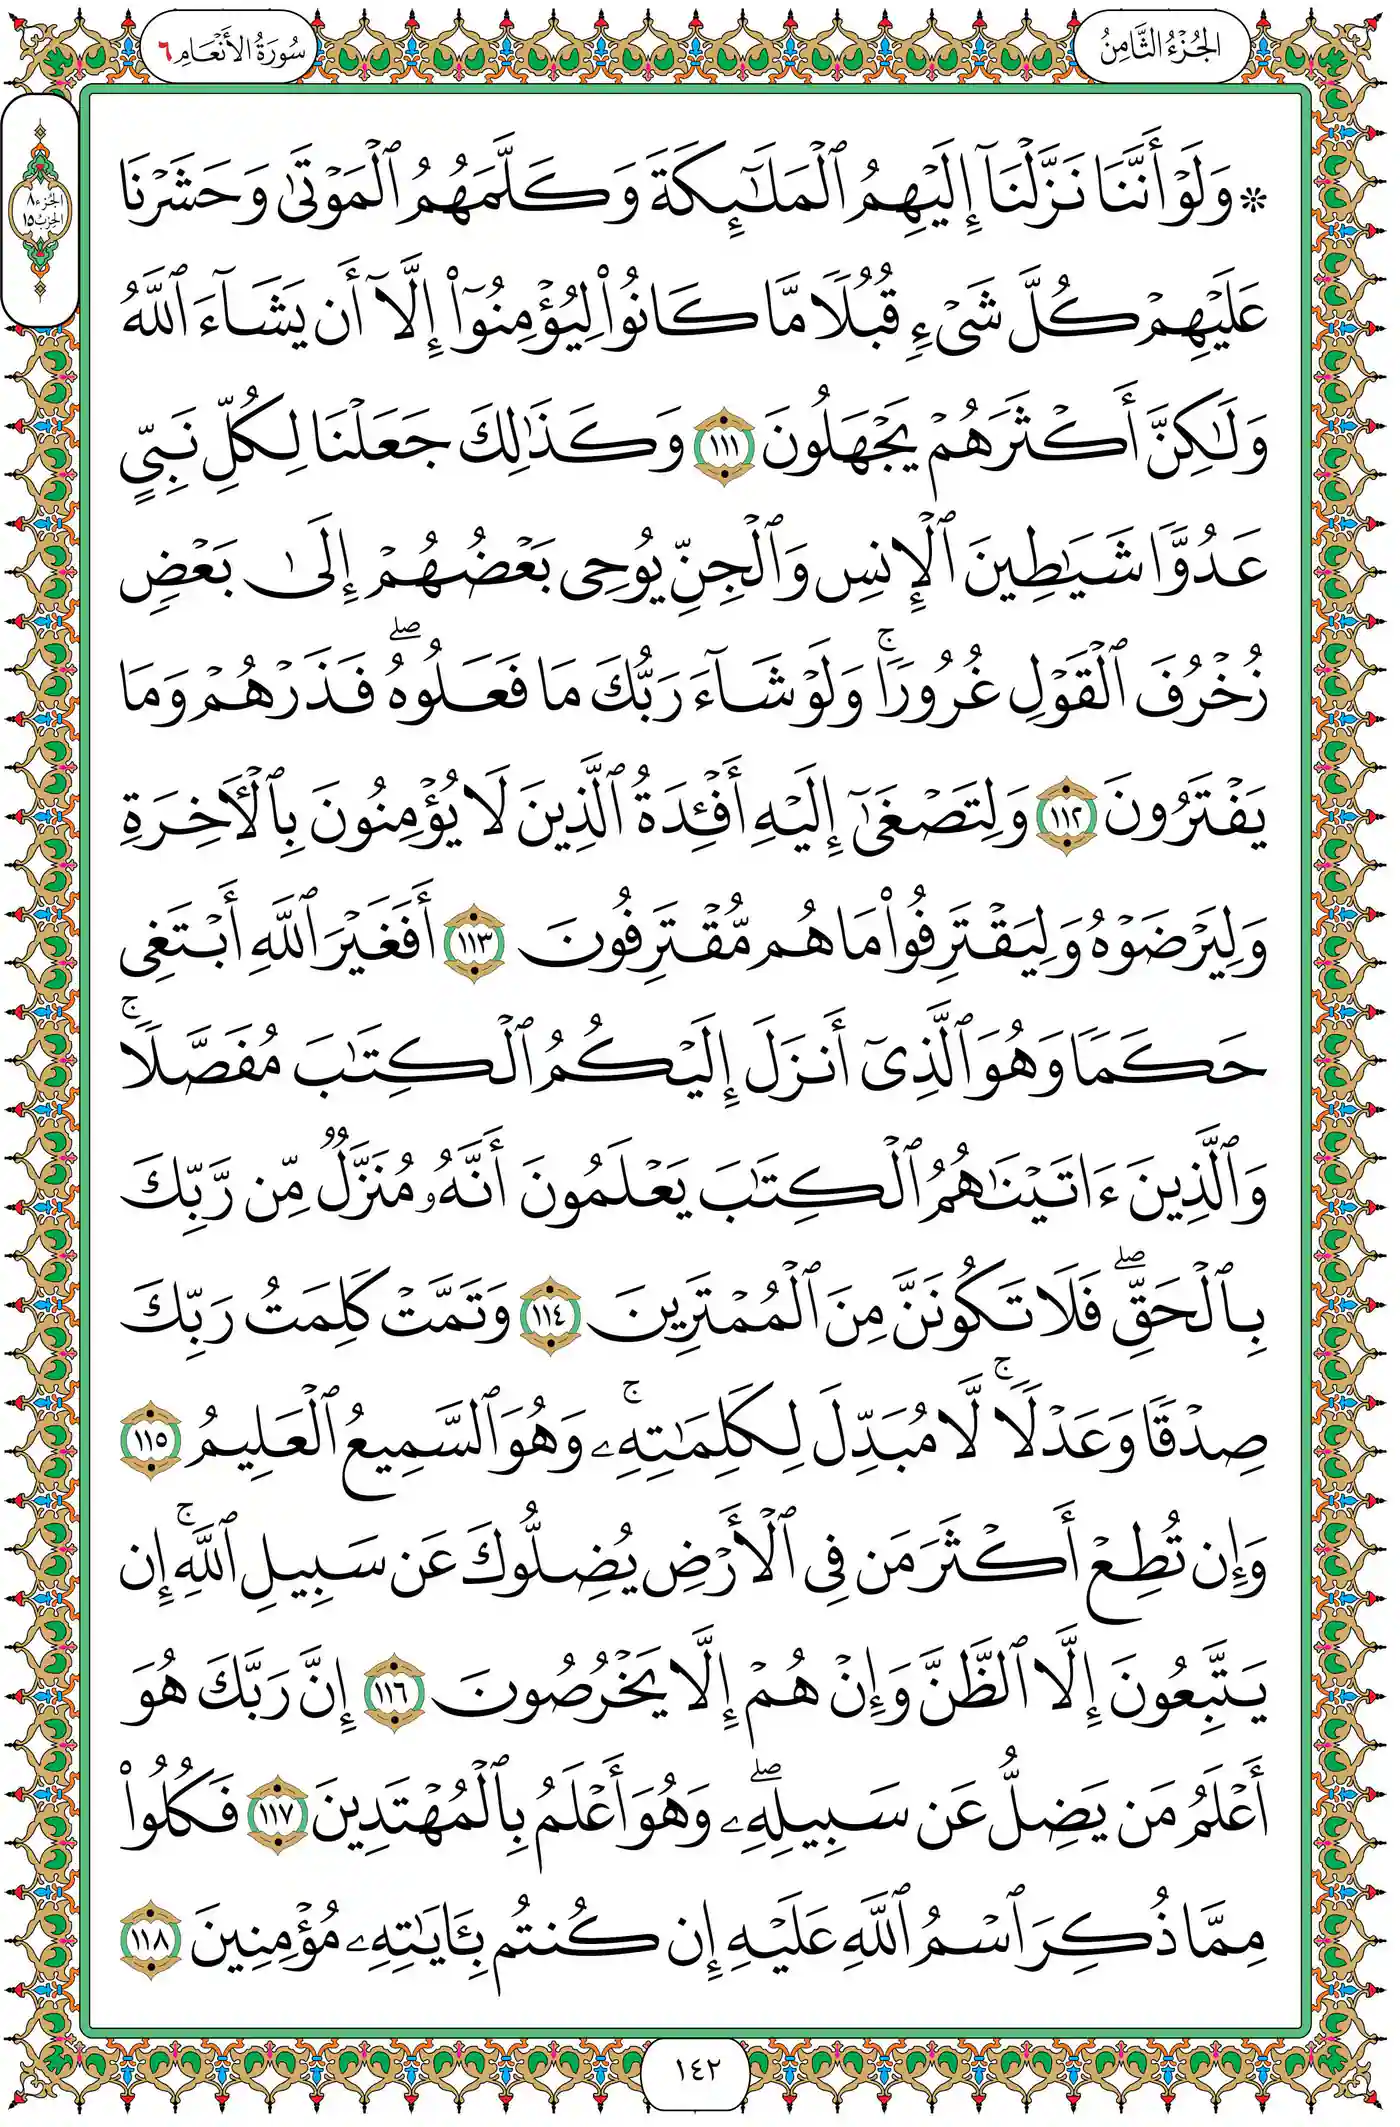 الجُزْءُ الثَّامِنُ
سُورَةُ الأَنْعَامِ ٦
الجزء ٨
الحزب ١٥
۞ وَلَوْ أَنَّنَا نَزَّلْنَآ إِلَيْهِمُ ٱلْمَلَـٰٓئِكَةَ وَكَلَّمَهُمُ ٱلْمَوْتَىٰ وَحَشَرْنَا
عَلَيْهِمْ كُلَّ شَىْءٍ قُبُلًا مَّا كَانُوا۟ لِيُؤْمِنُوٓا۟ إِلَّآ أَن يَشَآءَ ٱللَّهُ
وَلَـٰكِنَّ أَكْثَرَهُمْ يَجْهَلُونَ ١١١ وَكَذَٰلِكَ جَعَلْنَا لِكُلِّ نَبِىٍّ
عَدُوًّا شَيَـٰطِينَ ٱلْإِنسِ وَٱلْجِنِّ يُوحِى بَعْضُهُمْ إِلَىٰ بَعْضٍ
زُخْرُفَ ٱلْقَوْلِ غُرُورًا ۚ وَلَوْ شَآءَ رَبُّكَ مَا فَعَلُوهُ ۖ فَذَرْهُمْ وَمَا
يَفْتَرُونَ ١١٢ وَلِتَصْغَىٰٓ إِلَيْهِ أَفْـِٔدَةُ ٱلَّذِينَ لَا يُؤْمِنُونَ بِٱلْـَٔاخِرَةِ
وَلِيَرْضَوْهُ وَلِيَقْتَرِفُوا۟ مَا هُم مُّقْتَرِفُونَ ١١٣ أَفَغَيْرَ ٱللَّهِ أَبْتَغِى
حَكَمًا وَهُوَ ٱلَّذِىٓ أَنزَلَ إِلَيْكُمُ ٱلْكِتَـٰبَ مُفَصَّلًا ۚ
وَٱلَّذِينَ ءَاتَيْنَـٰهُمُ ٱلْكِتَـٰبَ يَعْلَمُونَ أَنَّهُۥ مُنَزَّلٌ مِّن رَّبِّكَ
بِٱلْحَقِّ ۖ فَلَا تَكُونَنَّ مِنَ ٱلْمُمْتَرِينَ ١١٤ وَتَمَّتْ كَلِمَتُ رَبِّكَ
صِدْقًا وَعَدْلًا ۚ لَّا مُبَدِّلَ لِكَلِمَـٰتِهِۦ ۚ وَهُوَ ٱلسَّمِيعُ ٱلْعَلِيمُ ١١٥
وَإِن تُطِعْ أَكْثَرَ مَن فِى ٱلْأَرْضِ يُضِلُّوكَ عَن سَبِيلِ ٱللَّهِ ۚ إِن
يَتَّبِعُونَ إِلَّا ٱلظَّنَّ وَإِنْ هُمْ إِلَّا يَخْرُصُونَ ١١٦ إِنَّ رَبَّكَ هُوَ
أَعْلَمُ مَن يَضِلُّ عَن سَبِيلِهِۦ ۖ وَهُوَ أَعْلَمُ بِٱلْمُهْتَدِينَ ١١٧ فَكُلُوا۟
مِمَّا ذُكِرَ ٱسْمُ ٱللَّهِ عَلَيْهِ إِن كُنتُم بِـَٔايَـٰتِهِۦ مُؤْمِنِينَ ١١٨
١٤٢